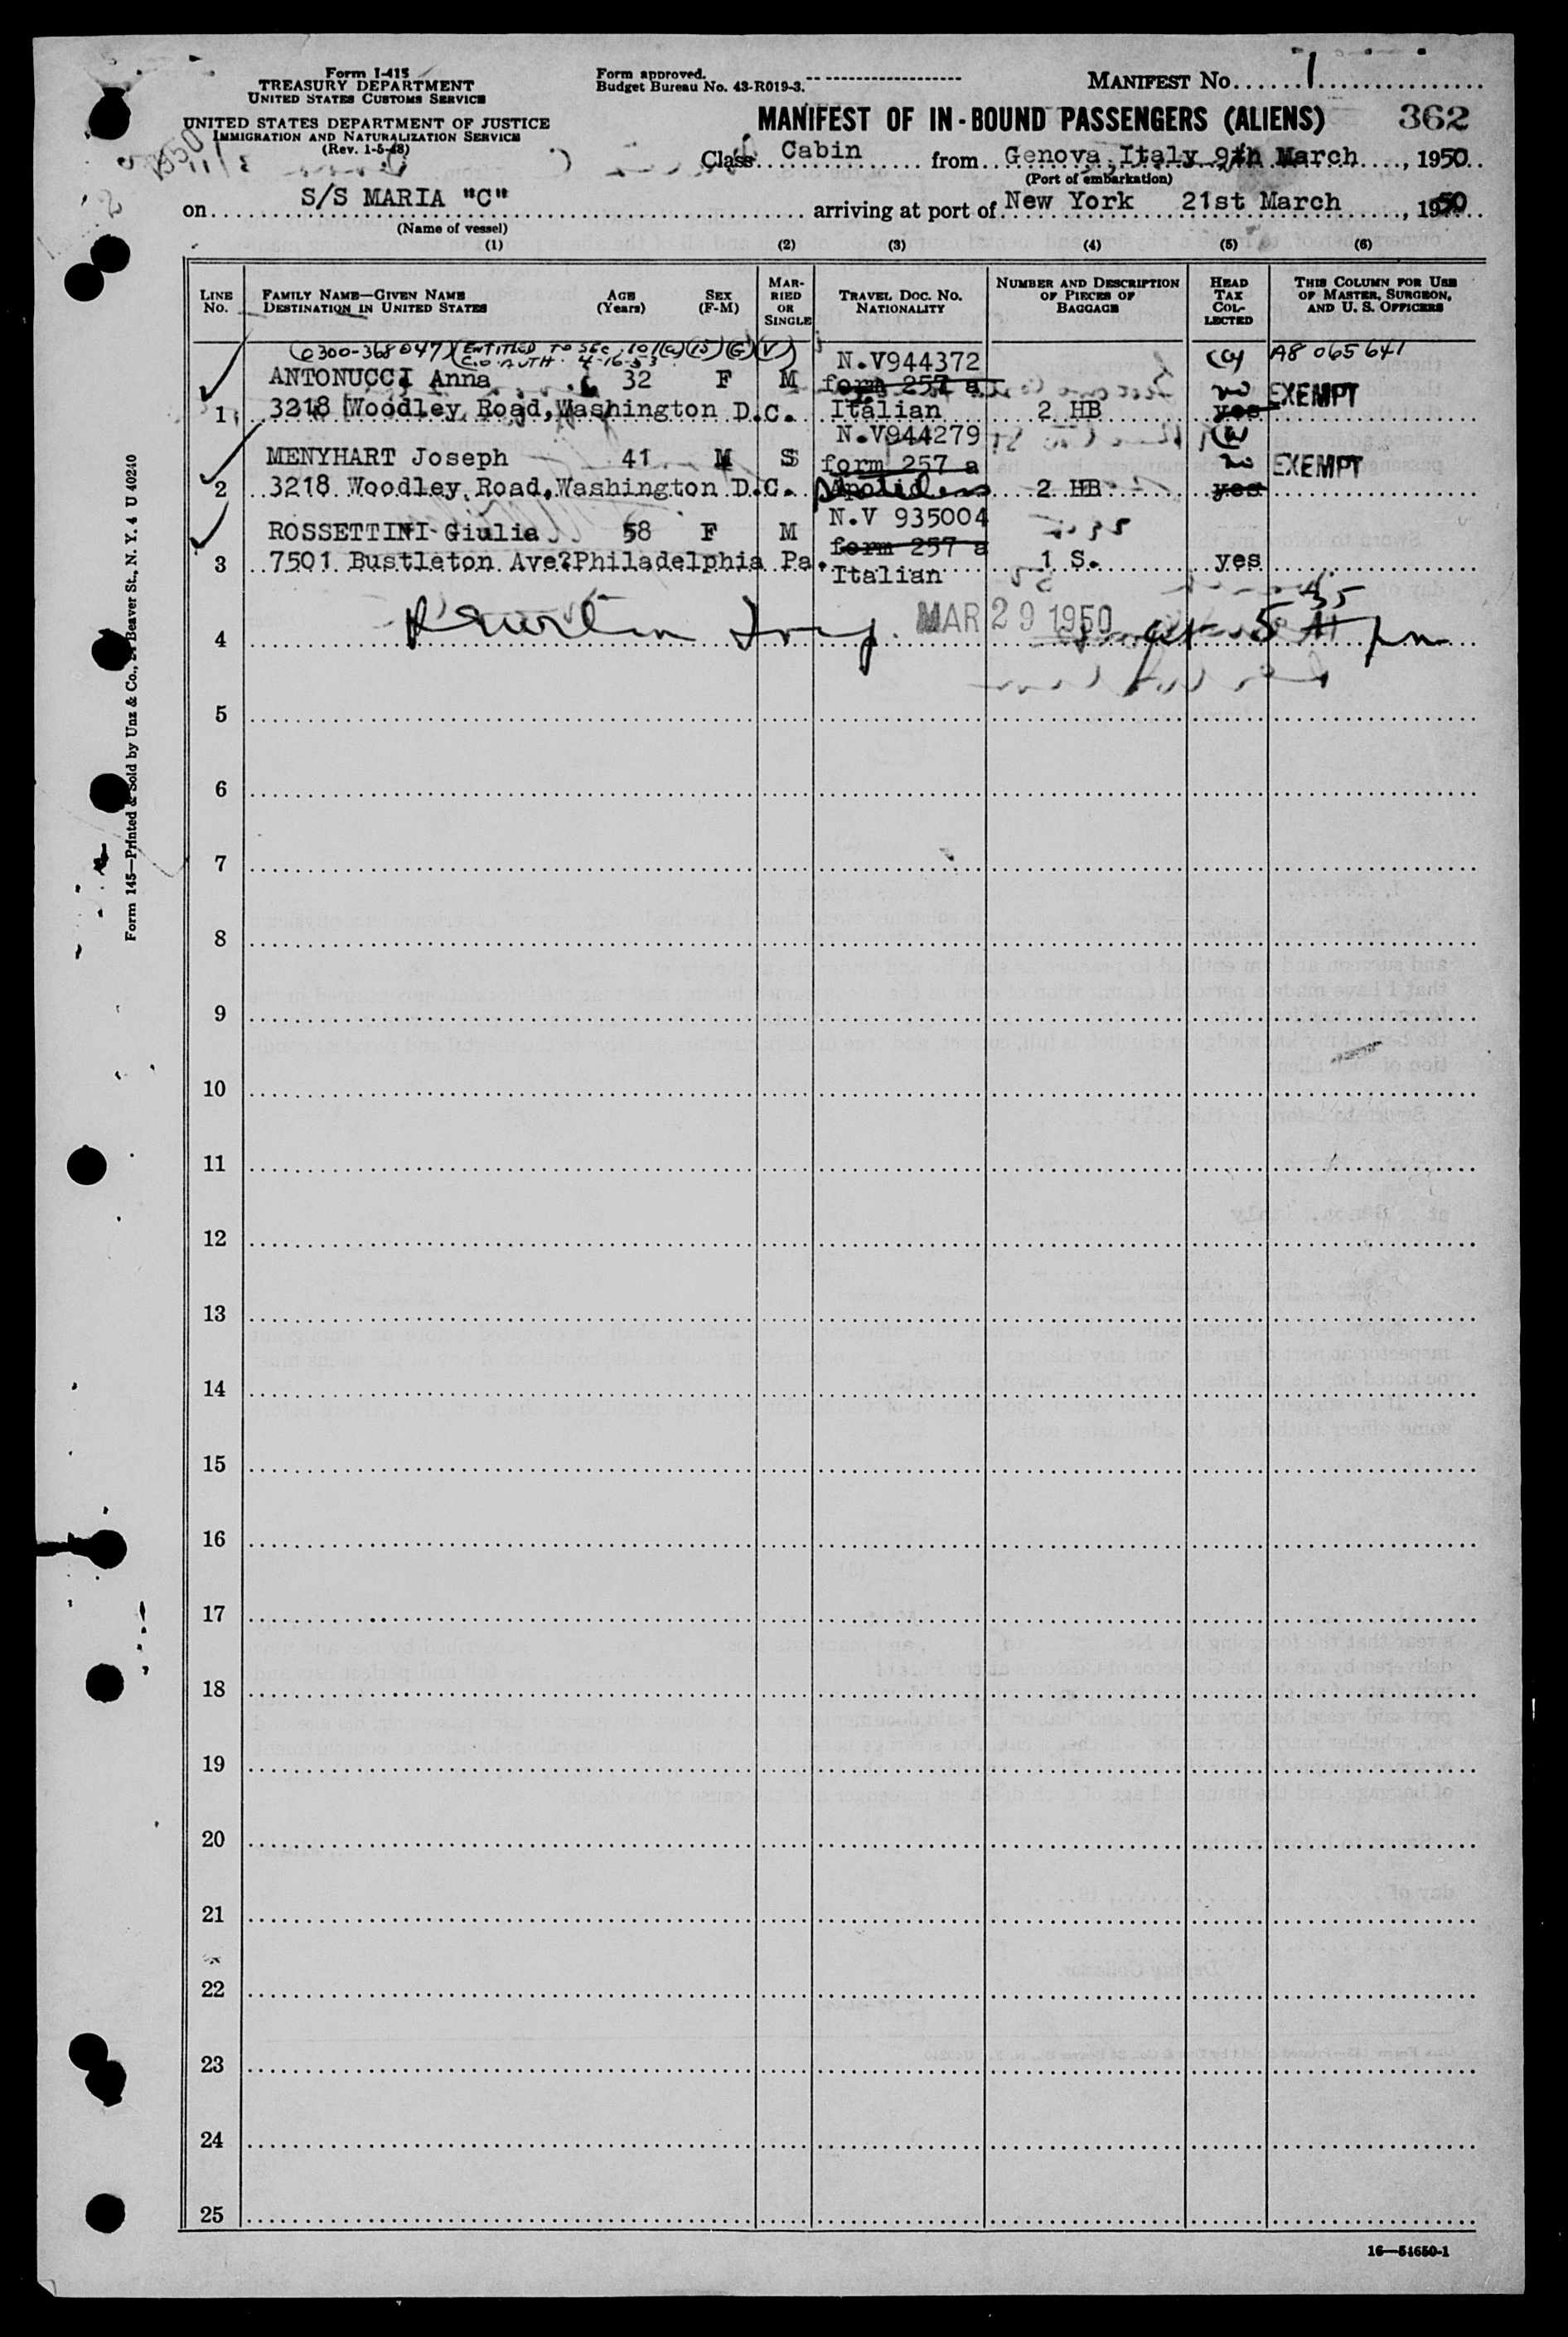 Form I-415
TREASURY DEPARTMENT
UNITED STATES CUSTOMS SERVICE
UNITED STATES DEPARTMENT OF JUSTICE
IMMIGRATION AND NATURALIZATION SERVICE
(Rev. 1-5-48)
Form approved.
Budget Bureau No. 43-R019-3.
MANIFEST No. 1
MANIFEST OF IN-BOUND PASSENGERS (ALIENS) 362
Class Cabin from Genova, Italy 9th March, 1950
(Port of embarkation)
on S/S MARIA "C" arriving at port of New York 21st March, 1950
(Name of vessel)
(1) (2) (3) (4) (5) (6)
LINE No.
FAMILY NAME—GIVEN NAME
DESTINATION IN UNITED STATES
AGE (Years)
SEX (F-M)
MARRIED OR SINGLE
TRAVEL DOC. No. NATIONALITY
NUMBER AND DESCRIPTION OF PIECES OF BAGGAGE
HEAD TAX COLLECTED
THIS COLUMN FOR USE OF MASTER, SURGEON, AND U. S. OFFICERS
(0300-368047) (ENTITLED TO SEC. 101(a)(15)(G)(V)
C.O. AUTH. 4-16-53
N.V944372 A8 065 641
ANTONUCCI Anna 32 F M form 257 a no EXEMPT
1 3218 Woodley Road, Washington D.C. Italian 2 HB yes
N.V944279
MENYHART Joseph 41 M S form 257 a no EXEMPT
2 3218 Woodley Road, Washington D.C. Apolid 2 HB yes
N.V 935004
ROSSETTINI Giulia 58 F M form 257 a
3 7501 Bustleton Ave? Philadelphia Pa. Italian 1 S. yes
4 MAR 29 1950 at 5 35 pm
5
6
7
8
9
10
11
12
13
14
15
16
17
18
19
20
21
22
23
24
25
16—54650-1
Form 145—Printed & Sold by Unz & Co., 24 Beaver St., N. Y. 4 U 40240